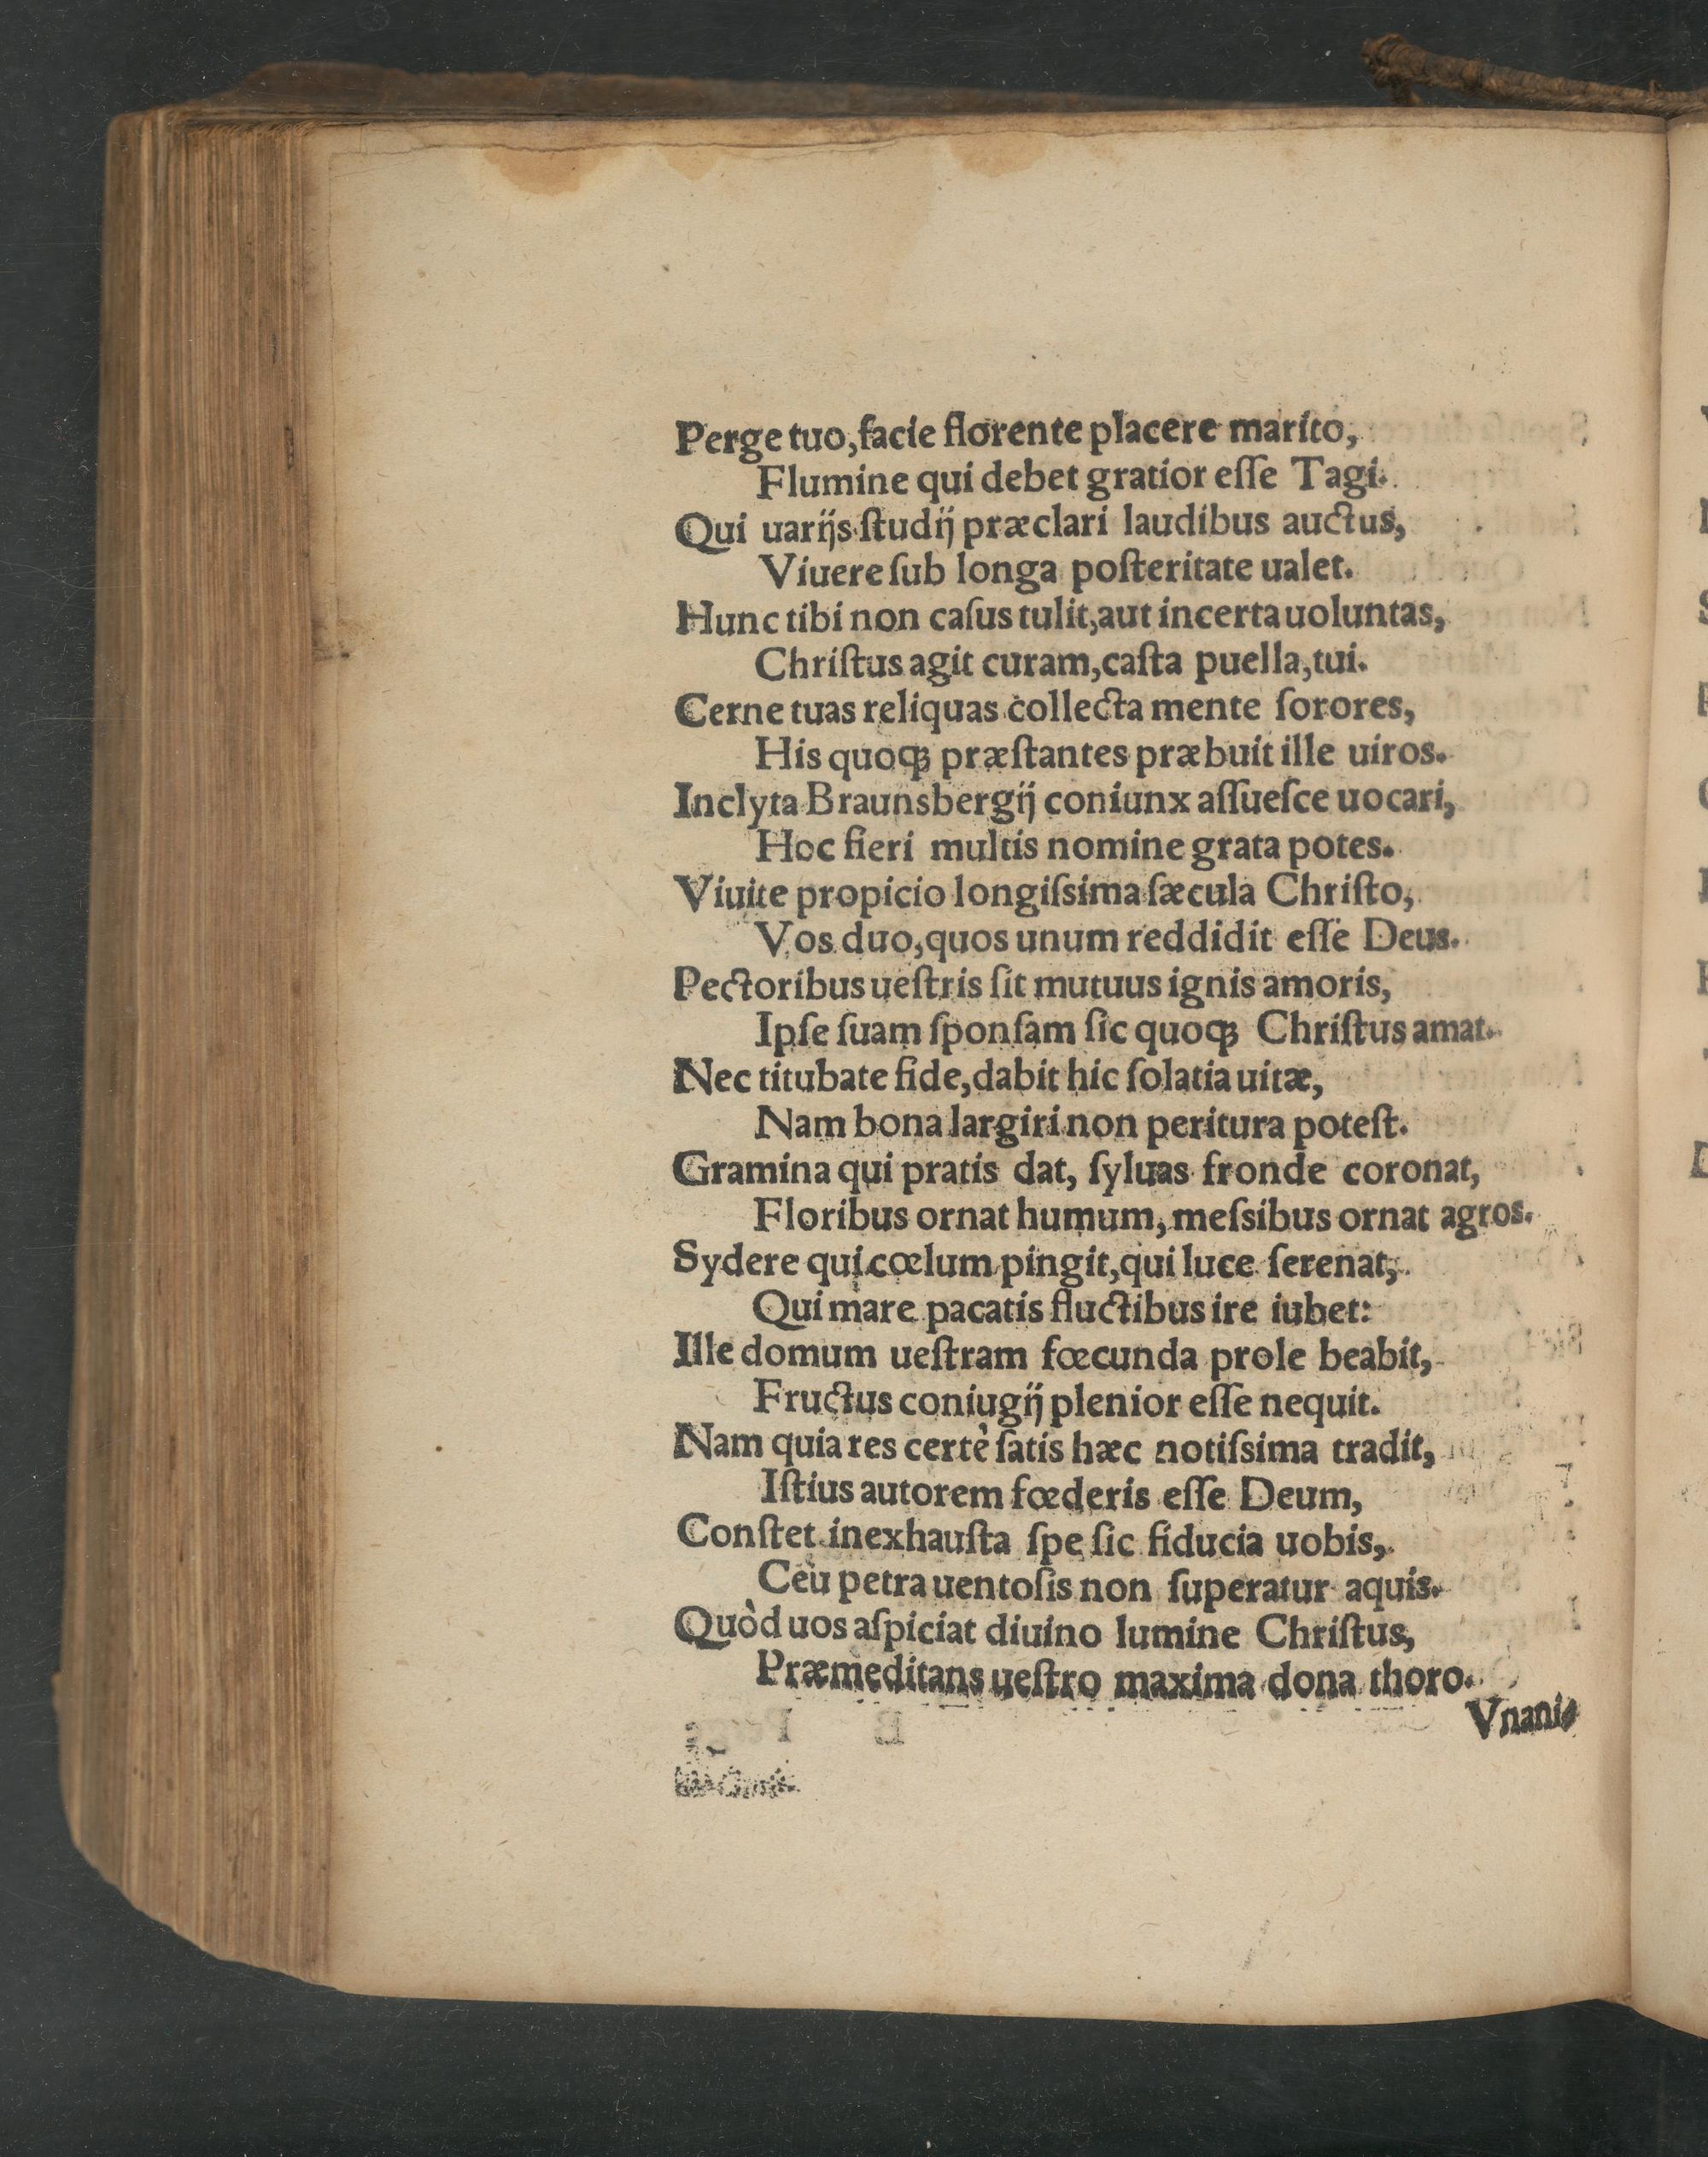 Perge tuo, facie florente placere marito,
Flumine qui debet gratior eſſe Tagi.
Qui uarijs ſtudij præclari laudibus auctus,
Viuere ſub longa poſteritate ualet.
Hunc tibi non caſus tulit, aut incerta uoluntas,
Chriſtus agit curam, caſta puella, tui.
Cerne tuas reliquas collecta mente ſorores,
His quoqꝫ præſtantes præbuit ille uiros.
Inclyta Braunsbergij coniunx aſſueſce uocari,
Hoc fieri multis nomine grata potes.
Viuite propicio longiſsima ſæcula Chriſto,
Vos duo, quos unum reddidit eſſe Deus.
Pectoribus ueſtris ſit mutuus ignis amoris,
Ipſe ſuam ſponſam ſic quoqꝫ Chriſtus amat.
Nec titubate fide, dabit hic ſolatia uitæ,
Nam bona largiri non peritura poteſt.
Gramina qui pratis dat, ſyluas fronde coronat,
Floribus ornat humum, meſsibus ornat agros.
Sydere qui cœlum pingit, qui luce ſerenat,
Qui mare pacatis fluctibus ire iubet:
Ille domum ueſtram fœcunda prole beabit,
Fructus coniugij plenior eſſe nequit.
Nam quia res certè ſatis hæc notiſsima tradit,
Iſtius autorem fœderis eſſe Deum,
Conſtet inexhauſta ſpe ſic fiducia uobis,
Ceù petra uentoſis non ſuperatur aquis.
Quòd uos aſpiciat diuino lumine Chriſtus,
Præmeditans ueſtro maxima dona thoro.
Vnani-